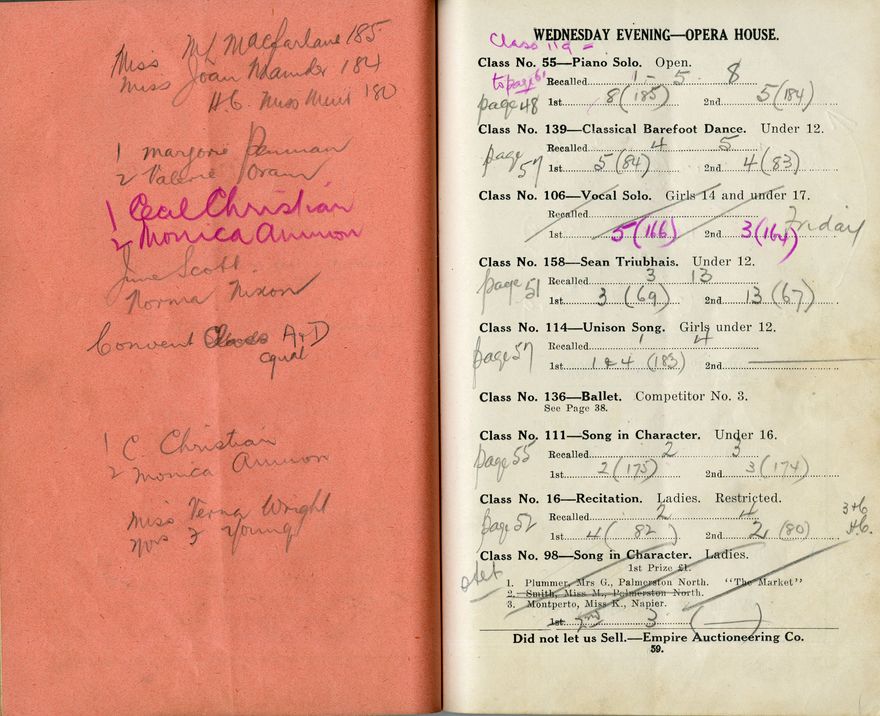 Miss M L Macfarlane 185
Miss Joan Maunder 184
H.C. Miss Muir 180
1 Marjorie Penman
2 Valerie Oram
1 Cecil Christian
2 Monica Ammon
June Scott.
Norma Nixon
Convent Class A & D
equal
1 C. Christian
2 Monica Ammon
Miss Verna Wright
Mrs F Young
WEDNESDAY EVENING—OPERA HOUSE.
Class 119 =
Class No. 55—Piano Solo. Open.
to page 61 Recalled 1 - 5 8
page 48 1st 8 (185) 2nd 5 (184)
Class No. 139—Classical Barefoot Dance. Under 12.
Recalled 4 5
page 57 1st 5 (84) 2nd 4 (83)
Class No. 106—Vocal Solo. Girls 14 and under 17.
Recalled Friday
1st 5 (166) 2nd 3 (164)
Class No. 158—Sean Triubhais. Under 12.
Recalled 3 13
page 51 1st 3 (69) 2nd 13 (67)
Class No. 114—Unison Song. Girls under 12.
Recalled 1 4
page 57 1st 1 & 4 (183) 2nd
Class No. 136—Ballet. Competitor No. 3.
See Page 38.
Class No. 111—Song in Character. Under 16.
Recalled 2 3
page 55 1st 2 (175) 2nd 3 (174)
Class No. 16—Recitation. Ladies. Restricted.
Recalled 2 4 3+6
page 52 1st 4 (82) 2nd 2 (80) H.C.
Class No. 98—Song in Character. Ladies.
1st Prize £1.
1. Plummer, Mrs G., Palmerston North. "The Market"
2. Smith, Miss M., Palmerston North.
3. Montperto, Miss K., Napier.
1st 2nd 3 ( )
Did not let us Sell.—Empire Auctioneering Co.
59.